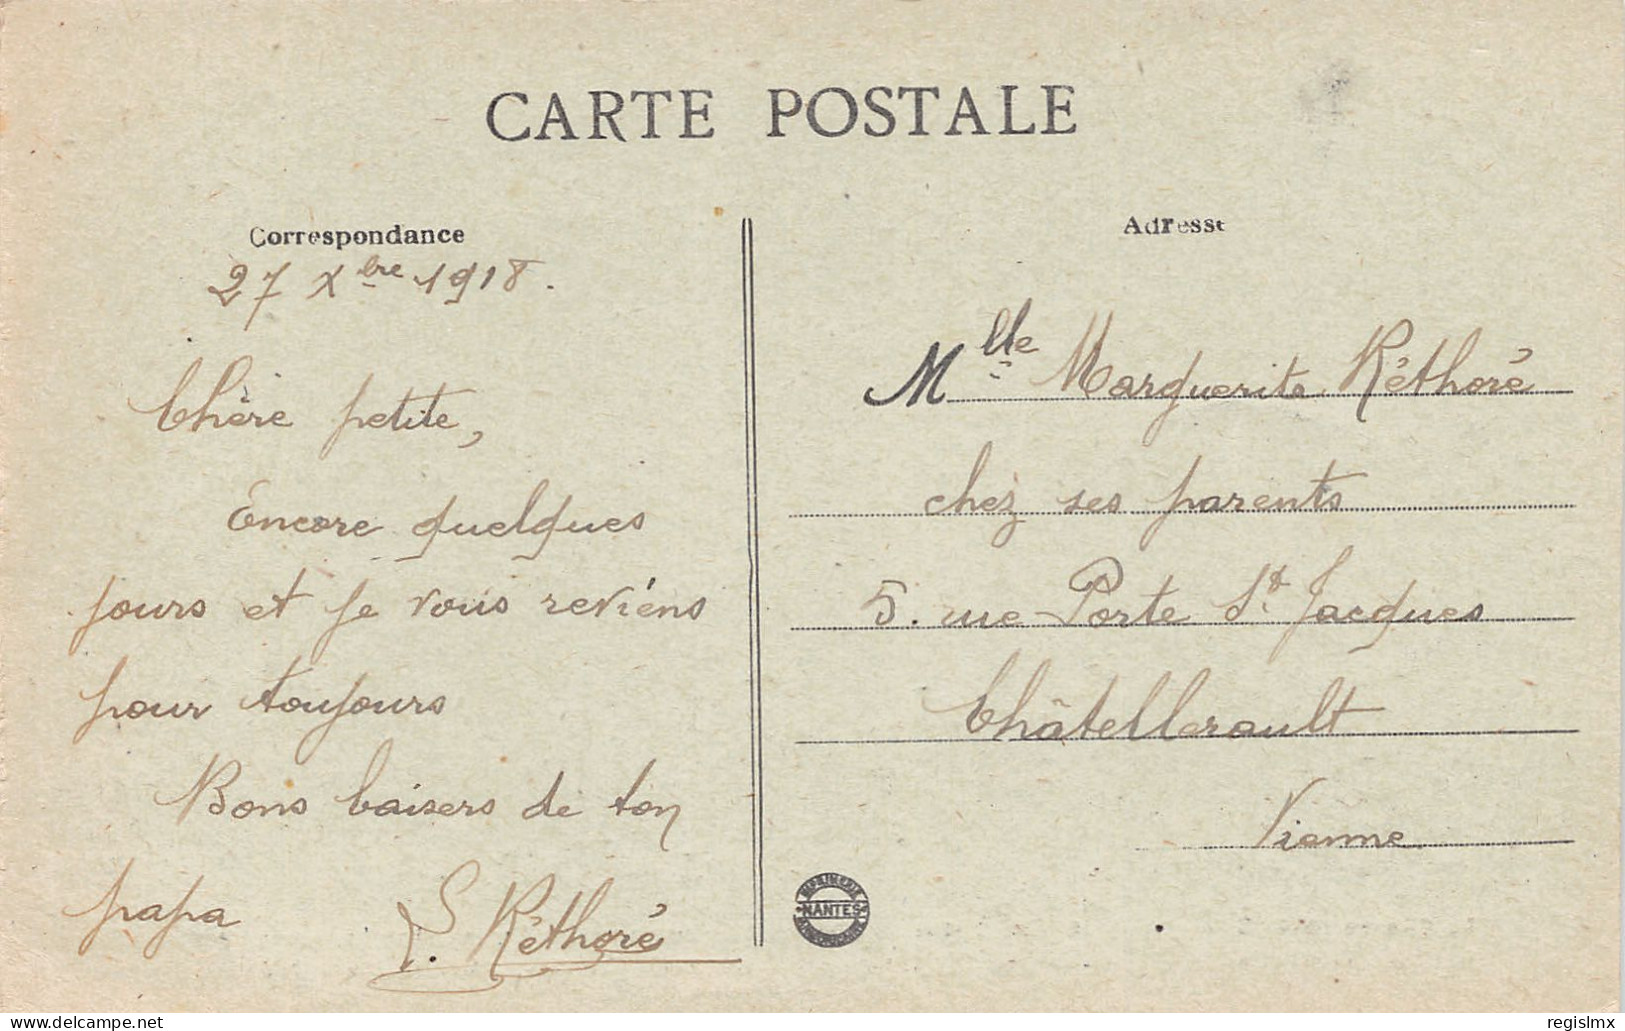 CARTE POSTALE
Correspondance
27 Xbre 1918.
Chère petite,
Encore quelques
jours et je vous reviens
pour toujours
Bons baisers de ton
papa
Réthoré
Adresse
Mlle Marguerite Réthoré
chez ses parents
5. rue Porte St. Jacques
Châtellerault
Vienne
IMPRIMERIE
NANTES
delcampe.net
regislmx